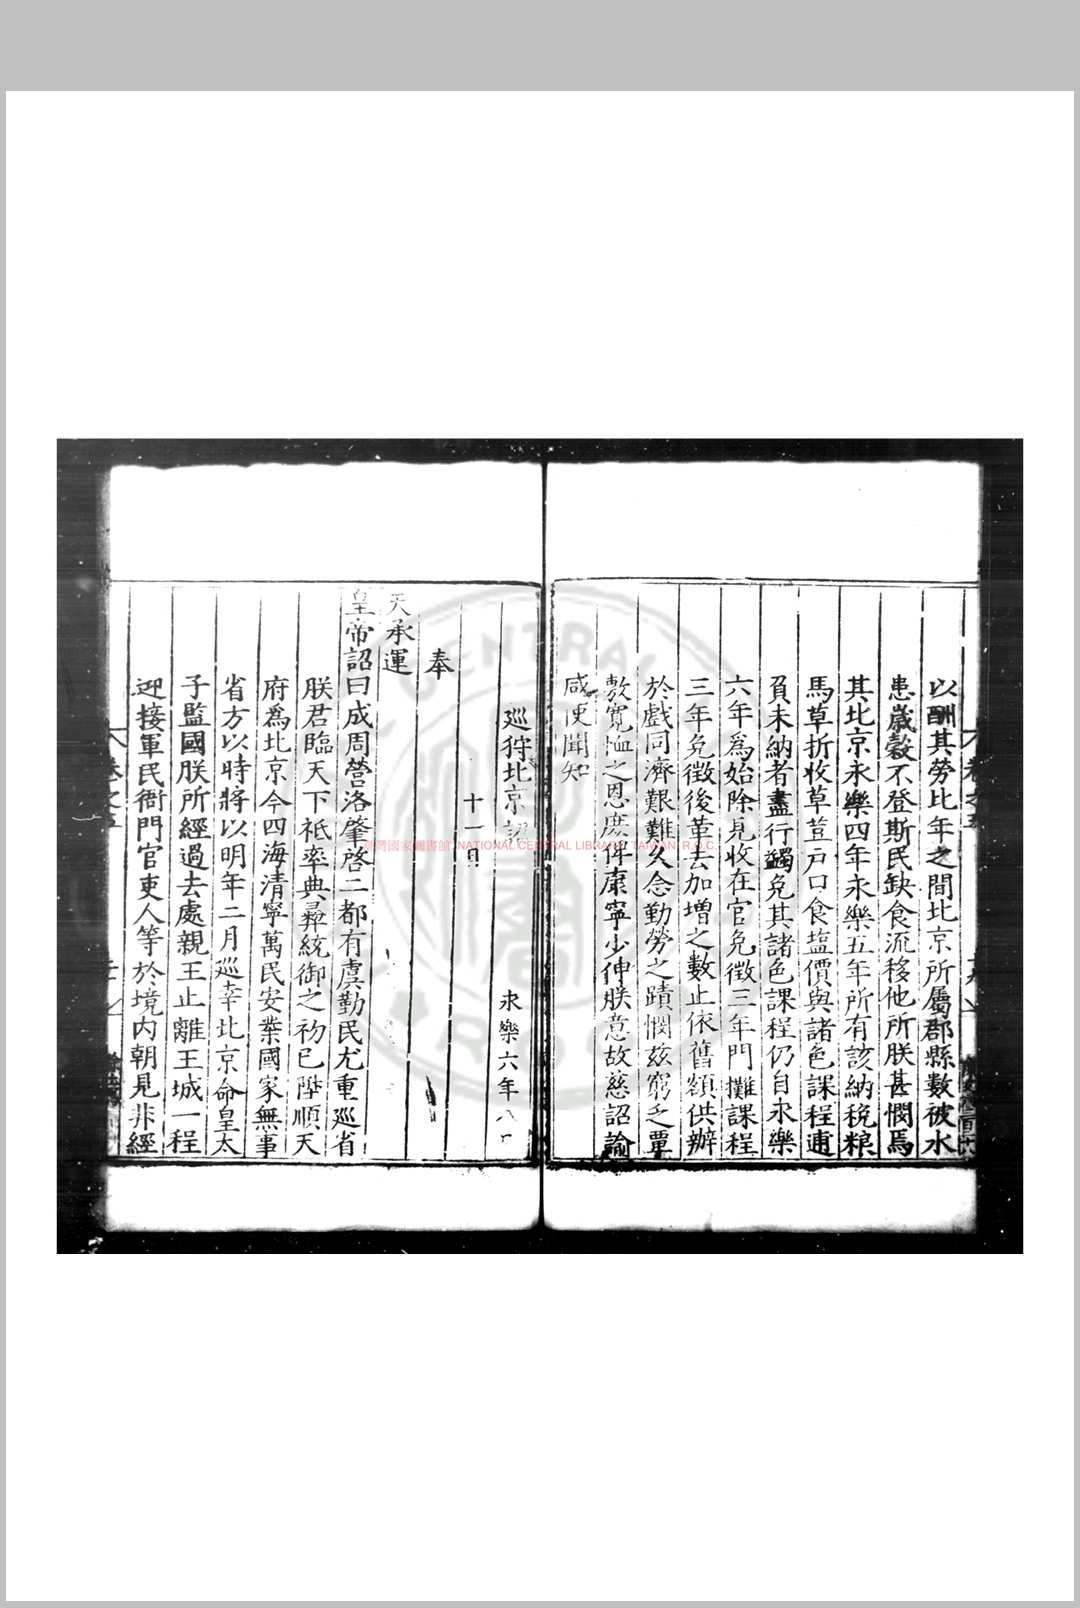 以酬其勞比年之間北京所屬郡縣數被水
患歲穀不登斯民缺食流移他所朕甚憫焉
其北京永樂四年永樂五年所有該納稅粮
馬草折收草荳戶口食塩價與諸色課程逋
負未納者盡行蠲免其諸色課程仍自永樂
六年爲始除見收在官免徵三年門攤課程
三年免徵後革去加增之數止依舊額供辦
於戲同濟艱難久念勤勞之蹟憫兹窮乏覃
敷寬恤之恩庶俾康寧少伸朕意故慈詔諭
咸使聞知
巡狩北京詔 永樂六年八
十一日
奉
天承運
皇帝詔曰成周營洛肇啓二都有虞勤民尤重巡省
朕君臨天下祗率典彛統御之初已陞順天
府爲北京今四海清寧萬民安業國家無事
省方以時將以明年二月巡幸北京命皇太
子監國朕所經過去處親王止離王城一程
迎接軍民衙門官吏人等於境内朝見非經
卷之五
臺灣國家圖書館 NATIONAL CENTRAL LIBRARY, TAIWAN, R.O.C.
CENTRAL L
R.O.C